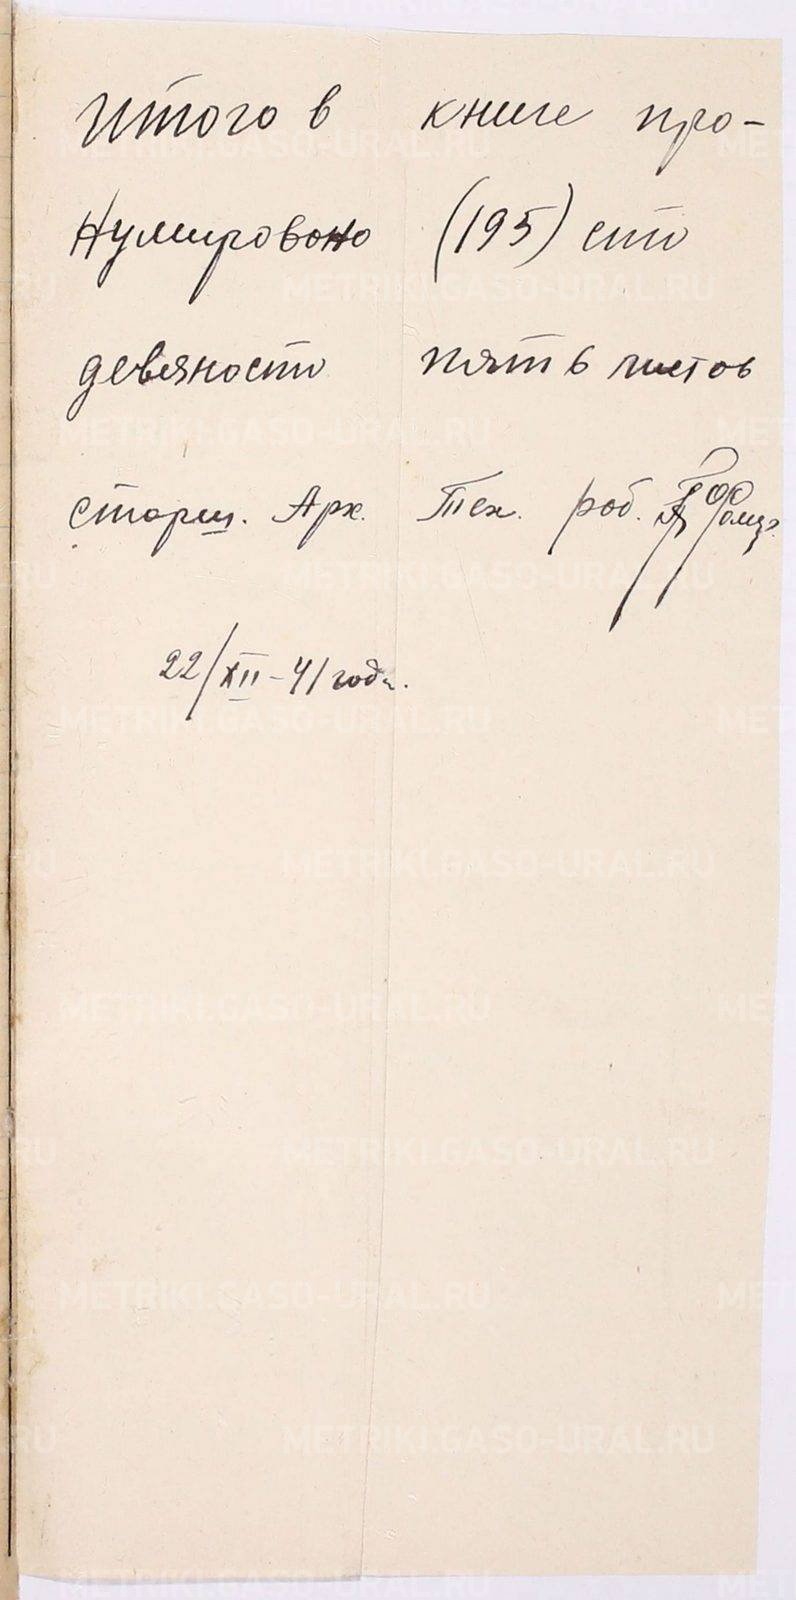 Итого в книге про-
нумировано (195) сто
девяносто пять листов
Старш. Арх. Тех. раб.
22/XII-41 года.
METRIKI.GASO-URAL.RU